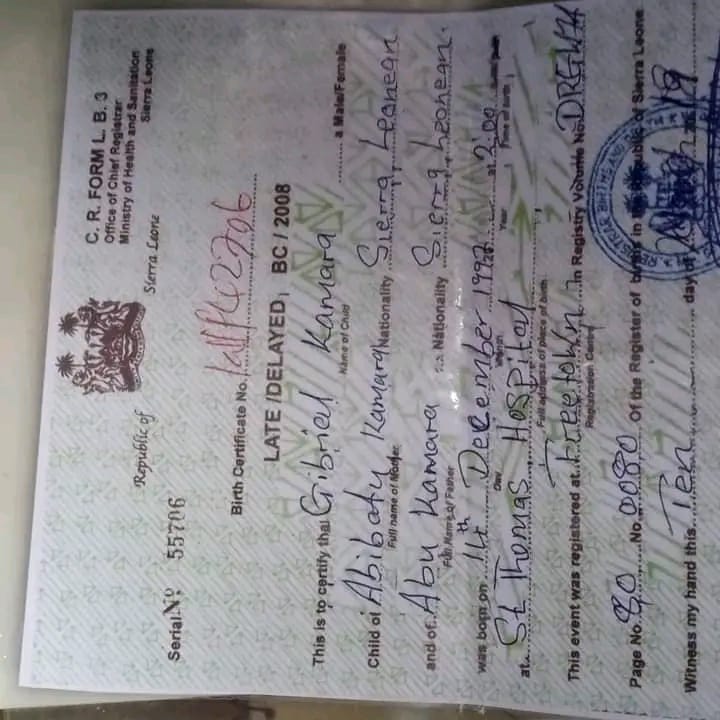 C. R. FORM L. B. 3
Office of Chief Registrar
Ministry of Health and Sanitation
Sierra Leone
Republic of Sierra Leone
Serial Nº 55706
Birth Certificate No.
LATE /DELAYED, BC / 2008
This is to certify that Gibriel Kamara a Male/Female
Name of Child
Child of Abibatu Kamara Nationality Sierra Leonean
Full name of Mother
and of Abu Kamara Nationality Sierra Leonean.
Full Name of Father
was born on 11th December 1992 at 2:00
Day Month Year Time of birth
at St Thomas Hospital
Full address of place of birth
This event was registered at Freetown in Registry Volume No. DRGWH
Registration Centre
Page No. 80 No. 0080 Of the Register of births in the Republic of Sierra Leone
Witness my hand this Ten day of 19